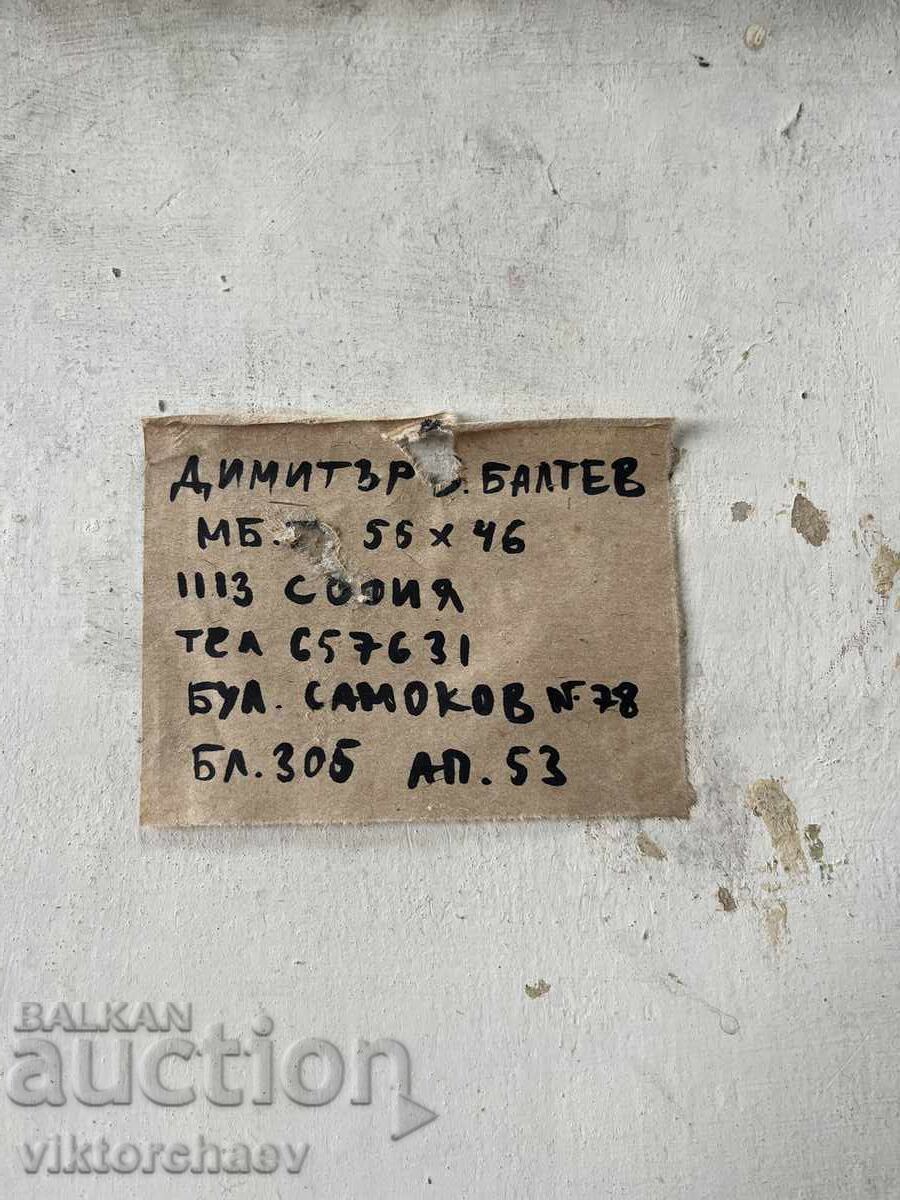 ДИМИТЪР В. БАЛТЕВ
МБ. 55 x 46
1113 СОФИЯ
ТЕЛ 657631
БУЛ. САМОКОВ №78
БЛ.305 АП.53
BALKAN
auction
viktorchaev